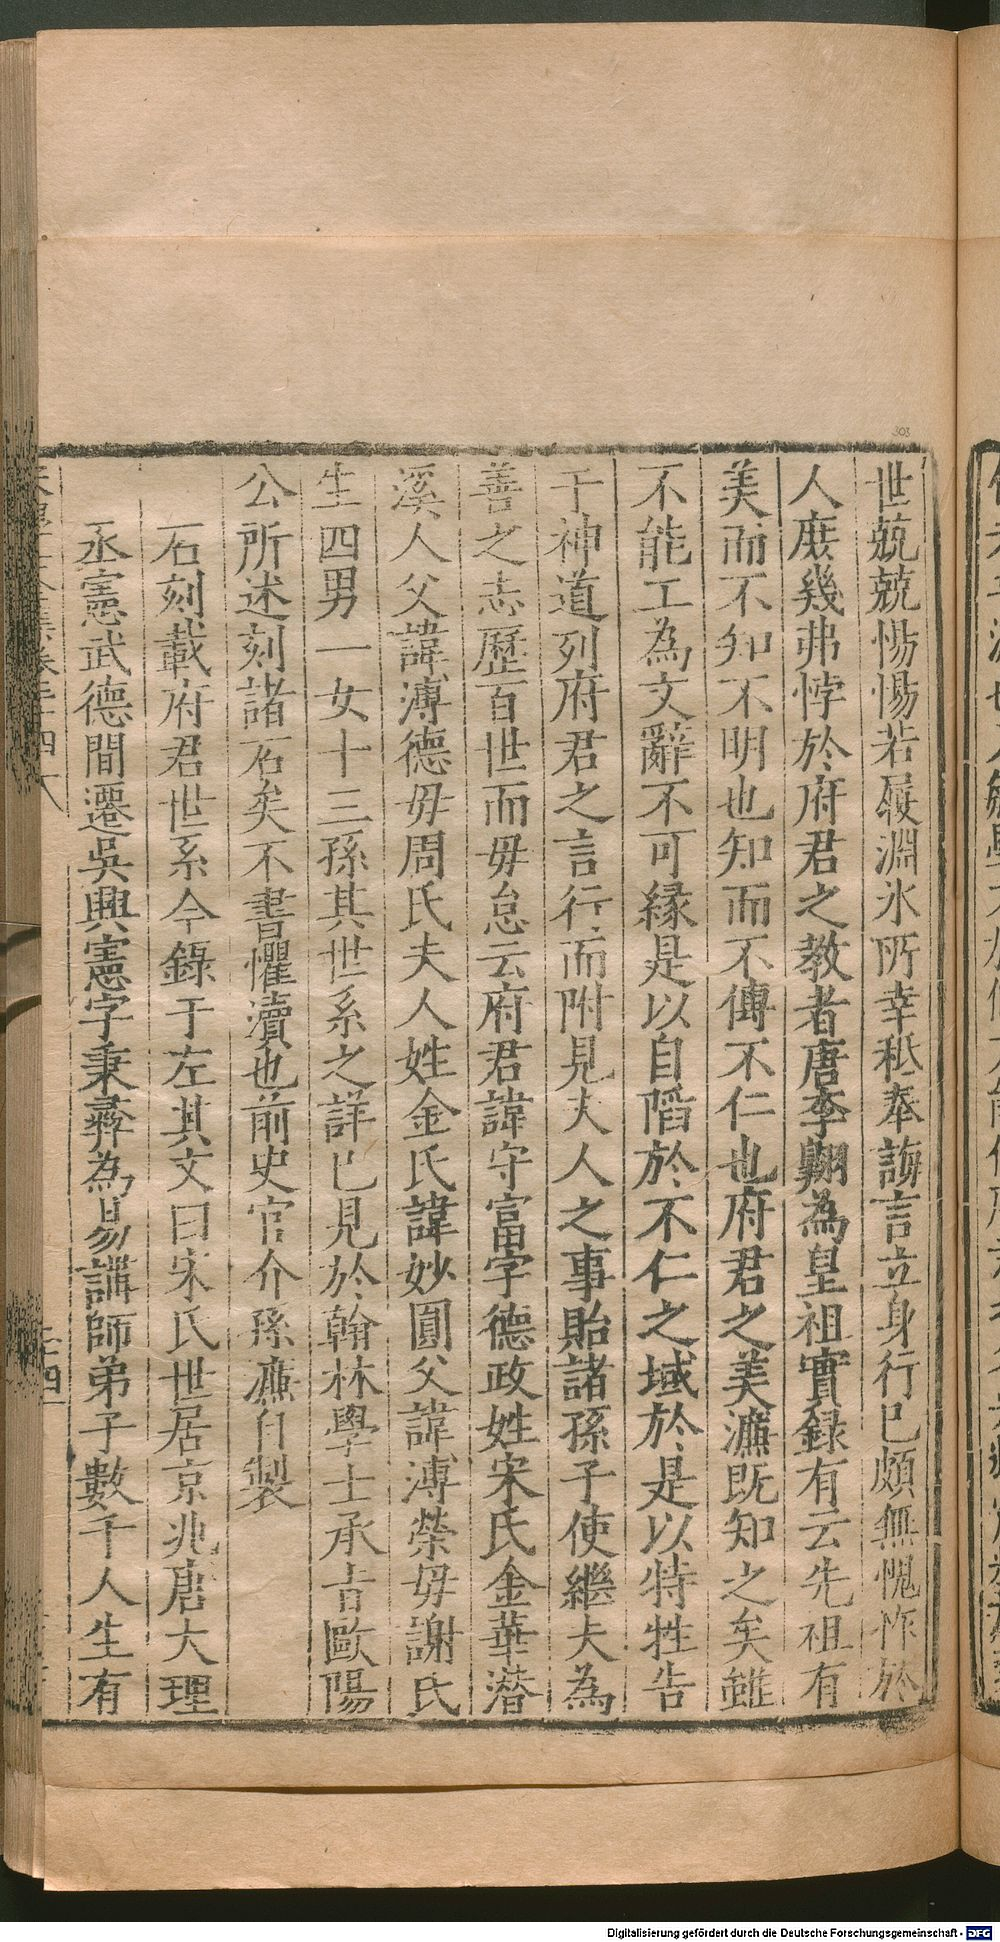 世兢兢惕惕若履淵氷所幸秪奉誨言立身行已頗無愧怍於
人庶幾弗悖於府君之教者唐李翺為皇祖實録有云先祖有
美而不知不明也知而不傳不仁也府君之美濂既知之矣雖
不能工為文辭不可緣是以自䧟於不仁之域於是以特牲告
于神道列府君之言行而附見夫人之事貽諸孫子使繼夫為
善之志歷百世而毋怠云府君諱守富字德政姓宋氏金華潛
溪人父諱溥德毋周氏夫人姓金氏諱妙圓父諱溥榮毋謝氏
生四男一女十三孫其世系之詳已見於翰林學士承㫖歐陽
公所述刻諸石矣不書懼瀆也前史官介孫濂自製
石刻載府君世系今錄于左其文曰宋氏世居京兆唐大理
丞憲武德間遷吳興憲字秉彛為易講師弟子數千人生有
303
Digitalisierung gefördert durch die Deutsche Forschungsgemeinschaft - DFG